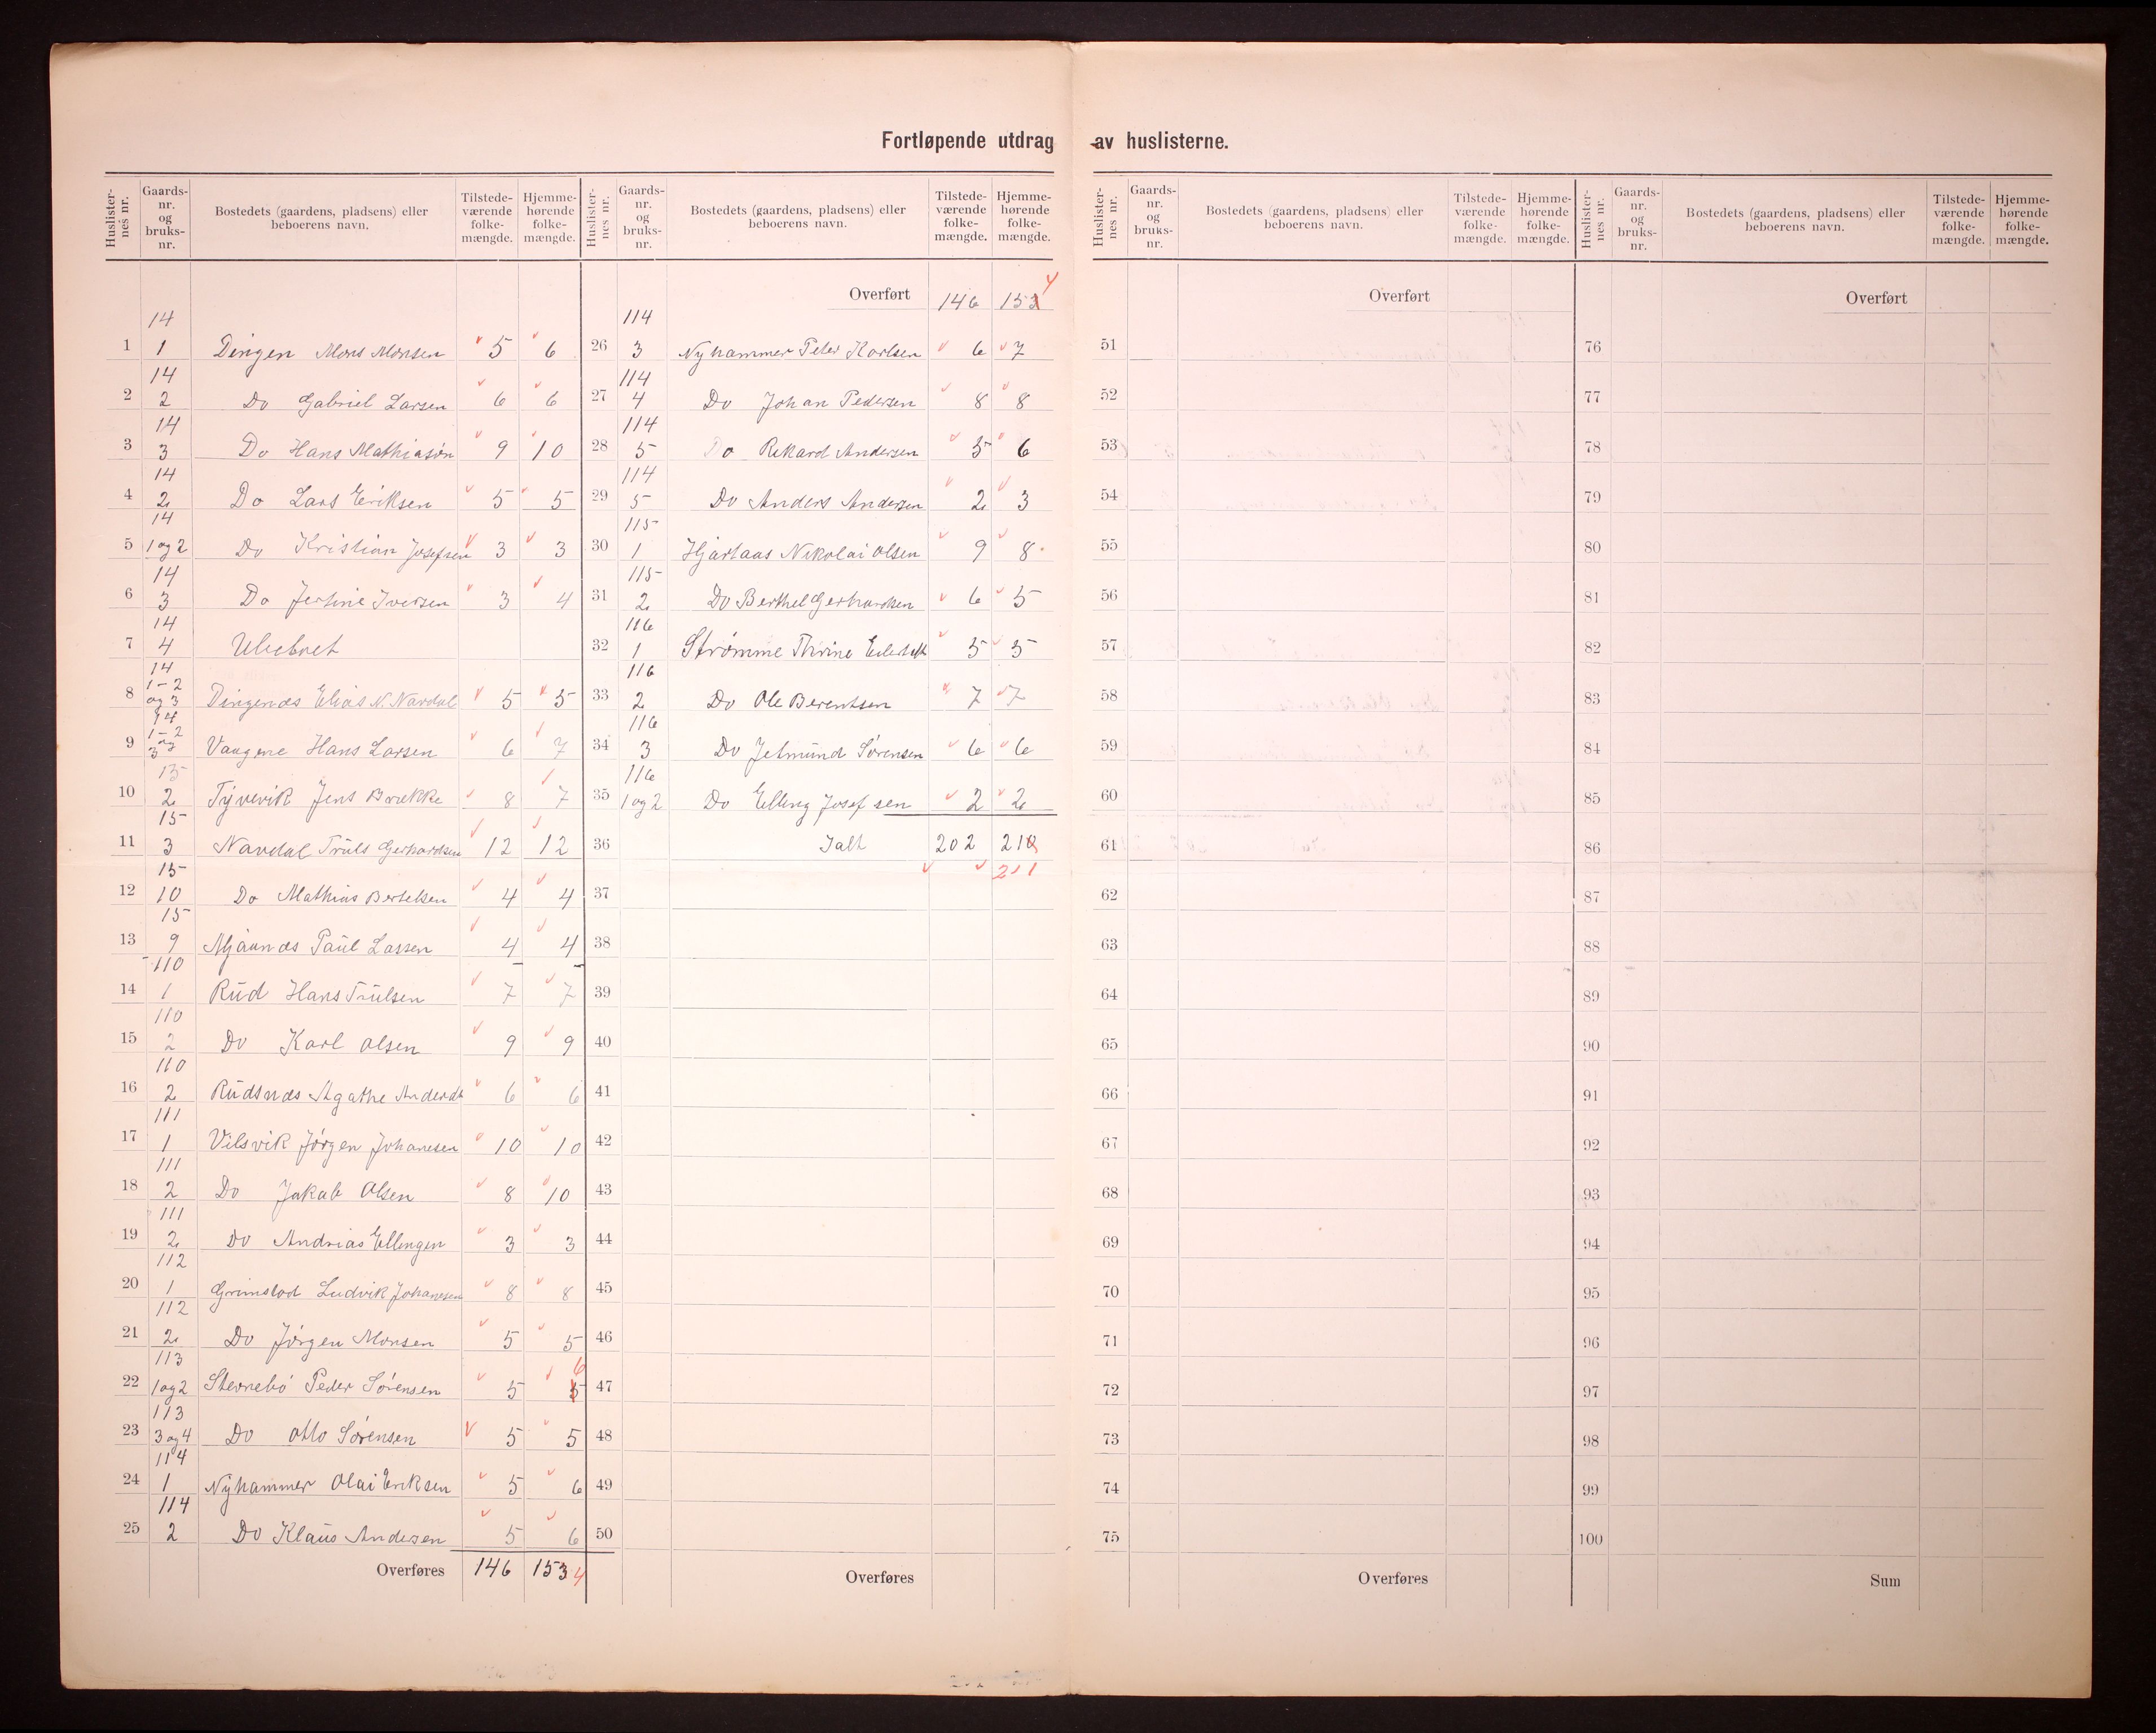 Fortløpende utdrag av huslisterne.
Huslisternes nr. Gaards-nr. og bruks-nr. Bostedets (gaardens, pladsens) eller beboerens navn. Tilstedeværende folkemængde. Hjemmehørende folkemængde.
14
1 1 Dingen Mons Monsen 5 6
14
2 2 Do Gabriel Larsen 6 6
14
3 3 Do Hans Mathiasøn 9 10
14
4 2 Do Lars Eriksen 5 5
14
5 1 og 2 Do Kristian Josefsen 3 3
14
6 3 Do Jertine Iversen 3 4
14
7 4 Ubeboet
14
1-2
8 og 3 Dingenæs Elias N. Nardal 5 5
14
1-2
9 og 3 Vaagene Hans Larsen 6 7
15
10 2 Tyvevik Jens Brække 8 7
15
11 3 Navdal Truls Gerhardsen 12 12
15
12 10 Do Mathias Bertelsen 4 4
15
13 9 Mjaanæs Paul Lassen 4 4
110
14 1 Rud Hans Trulsen 7 7
110
15 2 Do Karl Olsen 9 9
110
16 2 Rudsnæs Agathe Andersdt 6 6
111
17 1 Vilsvik Jørgen Johanesen 10 10
111
18 2 Do Jakab Olsen 8 10
111
19 2 Do Andrias Ellingen 3 3
112
20 1 Grimstad Ludvik Johanesen 8 8
112
21 2 Do Jørgen Monsen 5 5
113
22 1 og 2 Sternebö Peder Sørensen 5 5 6
113
23 3 og 4 Do Otto Sørensen 5 5
114
24 1 Nyhammer Olai Eriksen 5 6
114
25 2 Do Klaus Andersen 5 6
Overføres 146 153 4
Huslisternes nr. Gaards-nr. og bruks-nr. Bostedets (gaardens, pladsens) eller beboerens navn. Tilstedeværende folkemængde. Hjemmehørende folkemængde.
Overført 146 153 4
114
26 3 Nyhammer Peder Karlsen 6 7
114
27 4 Do Johan Pedersen 8 8
114
28 5 Do Rikard Andersen 5 6
114
29 5 Do Anders Andersen 2 3
115
30 1 Hjartaas Nikolai Olsen 9 8
115
31 2 Do Berthel Gerhardsen 6 5
116
32 1 Strømme Thrine 5 5
116
33 2 Do Ole Berentsen 7 7
116
34 3 Do Jetmund Sørensen 6 6
116
35 1 og 2 Do Elling Josefsen 2 2
36 Ialt 202 210
211
37
38
39
40
41
42
43
44
45
46
47
48
49
50
Overføres
Huslisternes nr. Gaards-nr. og bruks-nr. Bostedets (gaardens, pladsens) eller beboerens navn. Tilstedeværende folkemængde. Hjemmehørende folkemængde.
Overført
51
52
53
54
55
56
57
58
59
60
61
62
63
64
65
66
67
68
69
70
71
72
73
74
75
Overføres
Huslisternes nr. Gaards-nr. og bruks-nr. Bostedets (gaardens, pladsens) eller beboerens navn. Tilstedeværende folkemængde. Hjemmehørende folkemængde.
Overført
76
77
78
79
80
81
82
83
84
85
86
87
88
89
90
91
92
93
94
95
96
97
98
99
100
Sum